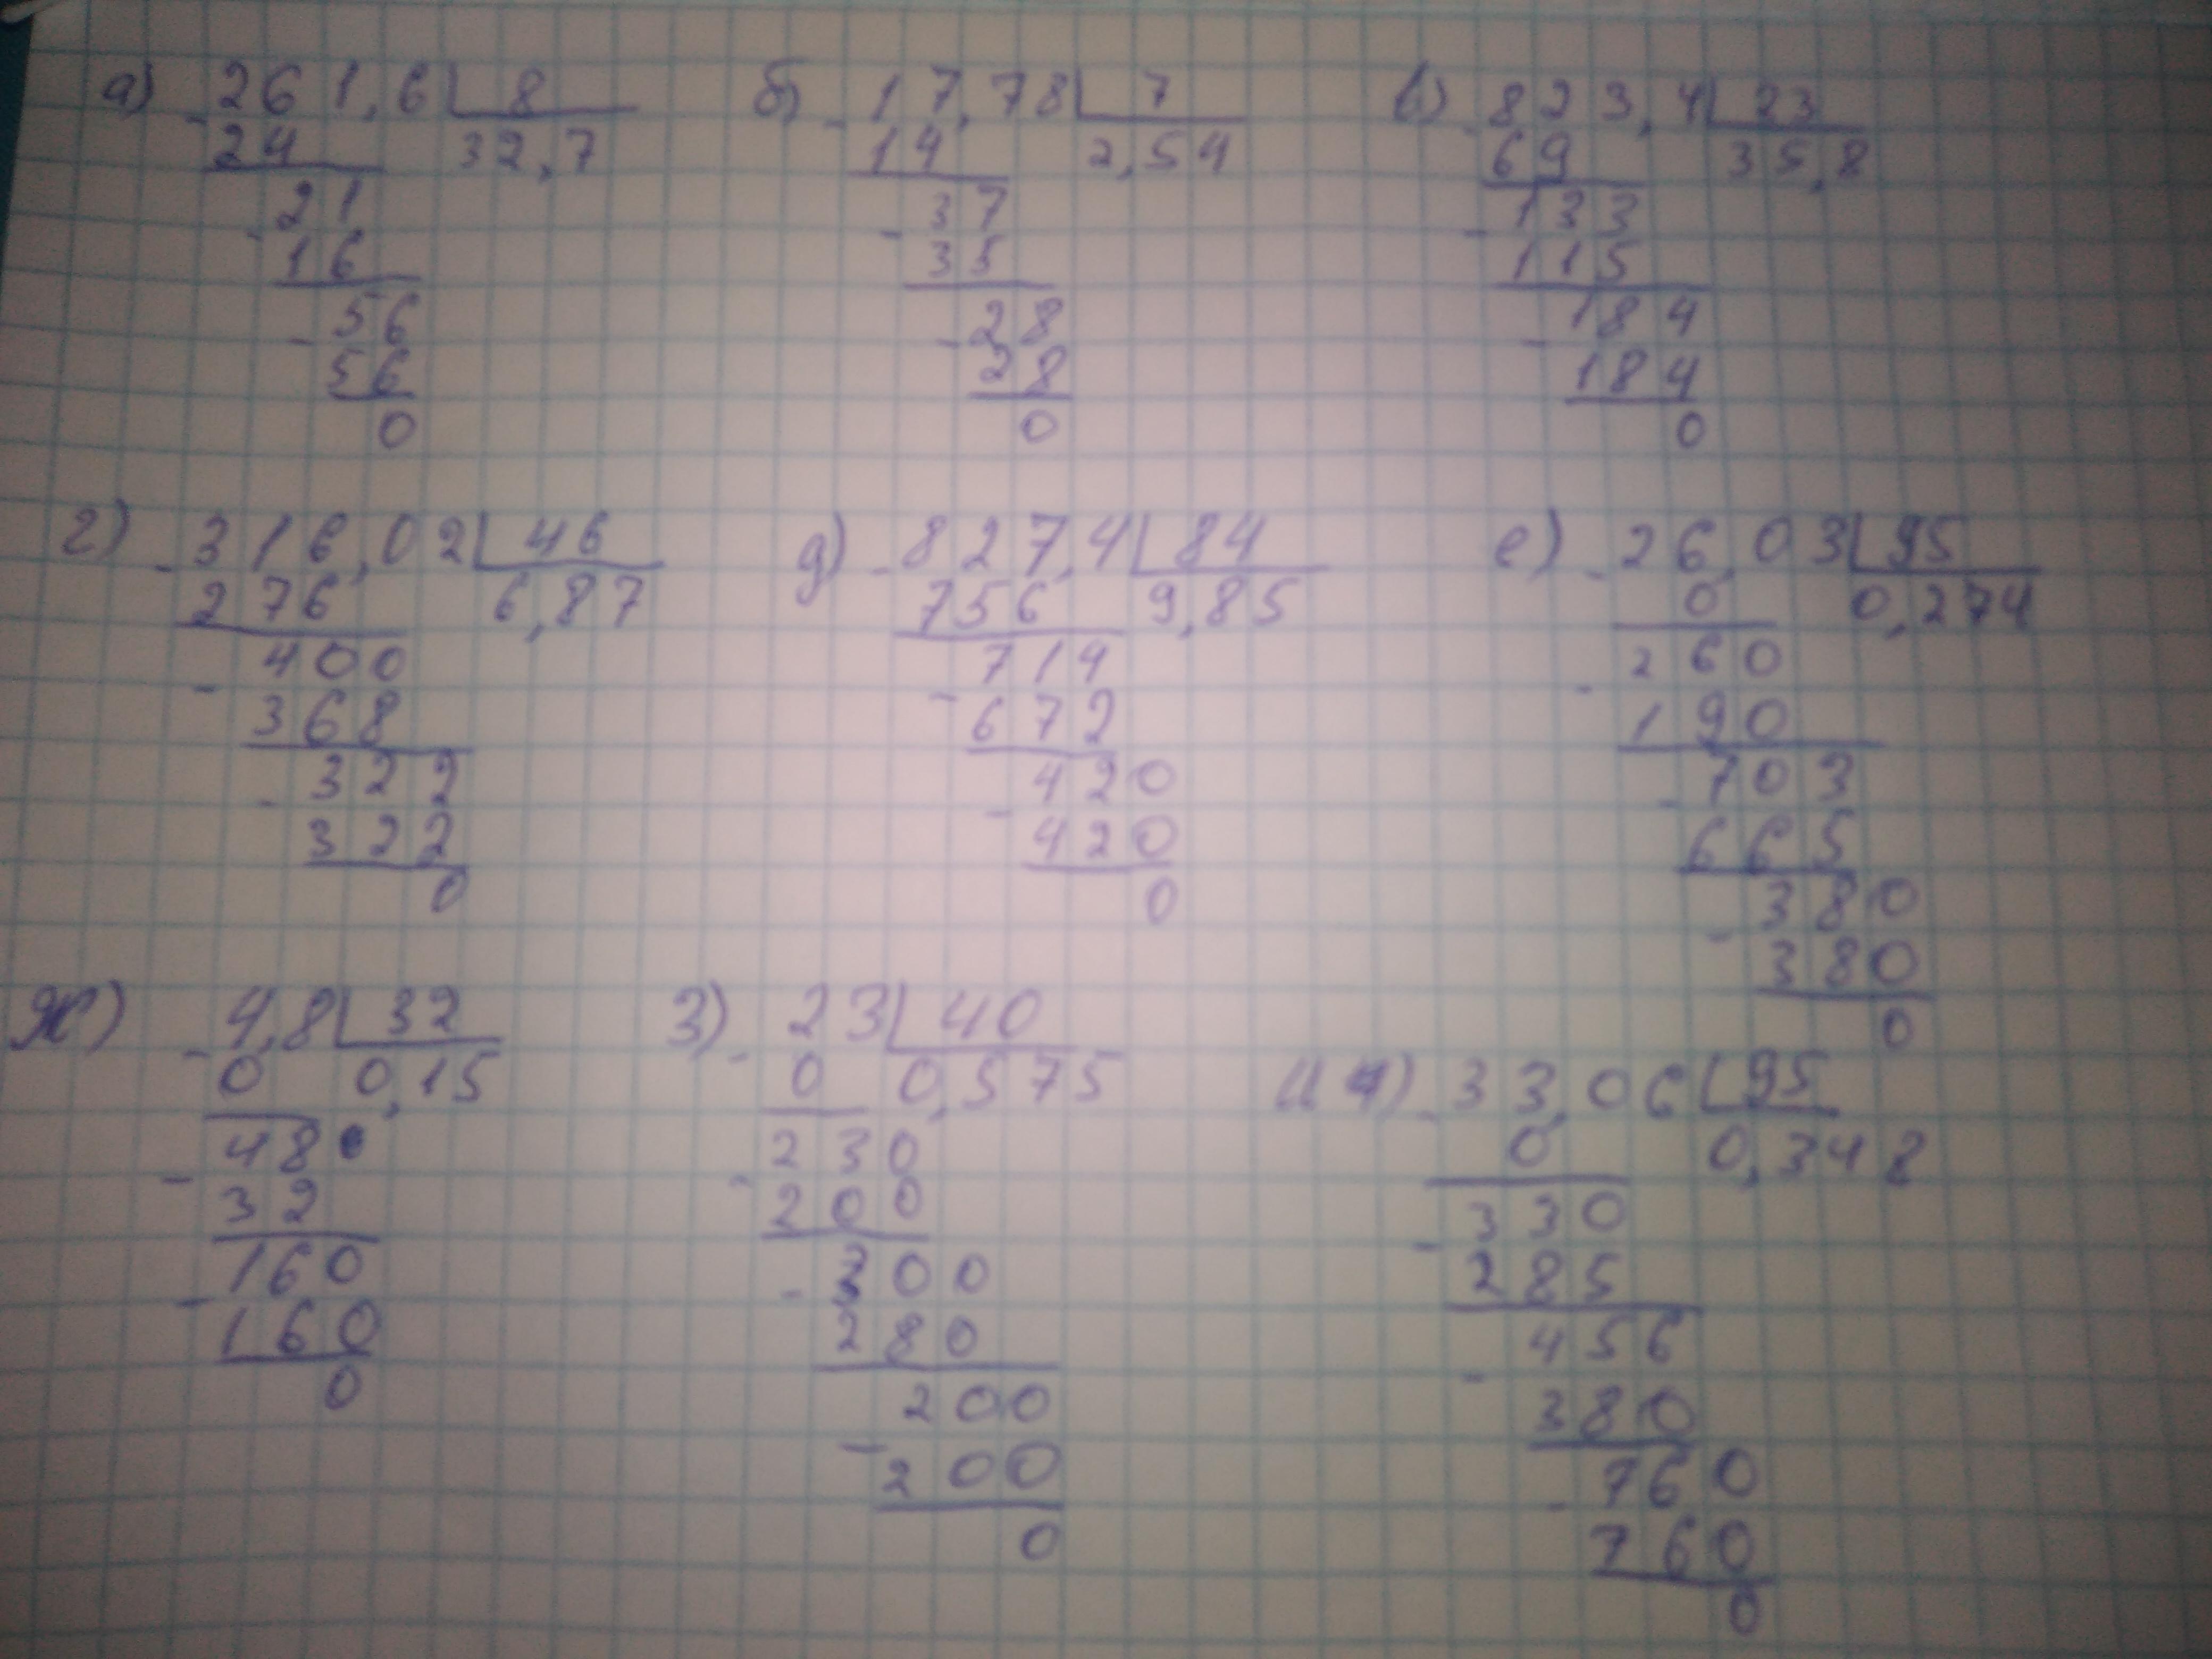 а) 261,6 8
24 32,7
21
16
56
56
0
б) 17,78 7
14 2,54
37
35
28
28
0
в) 823,4 23
69 35,8
133
115
184
184
0
г) 316,02 46
276 6,87
400
368
322
322
0
д) 827,4 84
756 9,85
714
672
420
420
0
е) 26,03 95
0 0,274
260
190
703
665
380
380
0
ж) 4,8 32
0 0,15
48
32
160
160
0
з) 23 40
0 0,575
230
200
300
280
200
200
0
и) 33,06 95
0 0,348
330
285
456
380
760
760
0